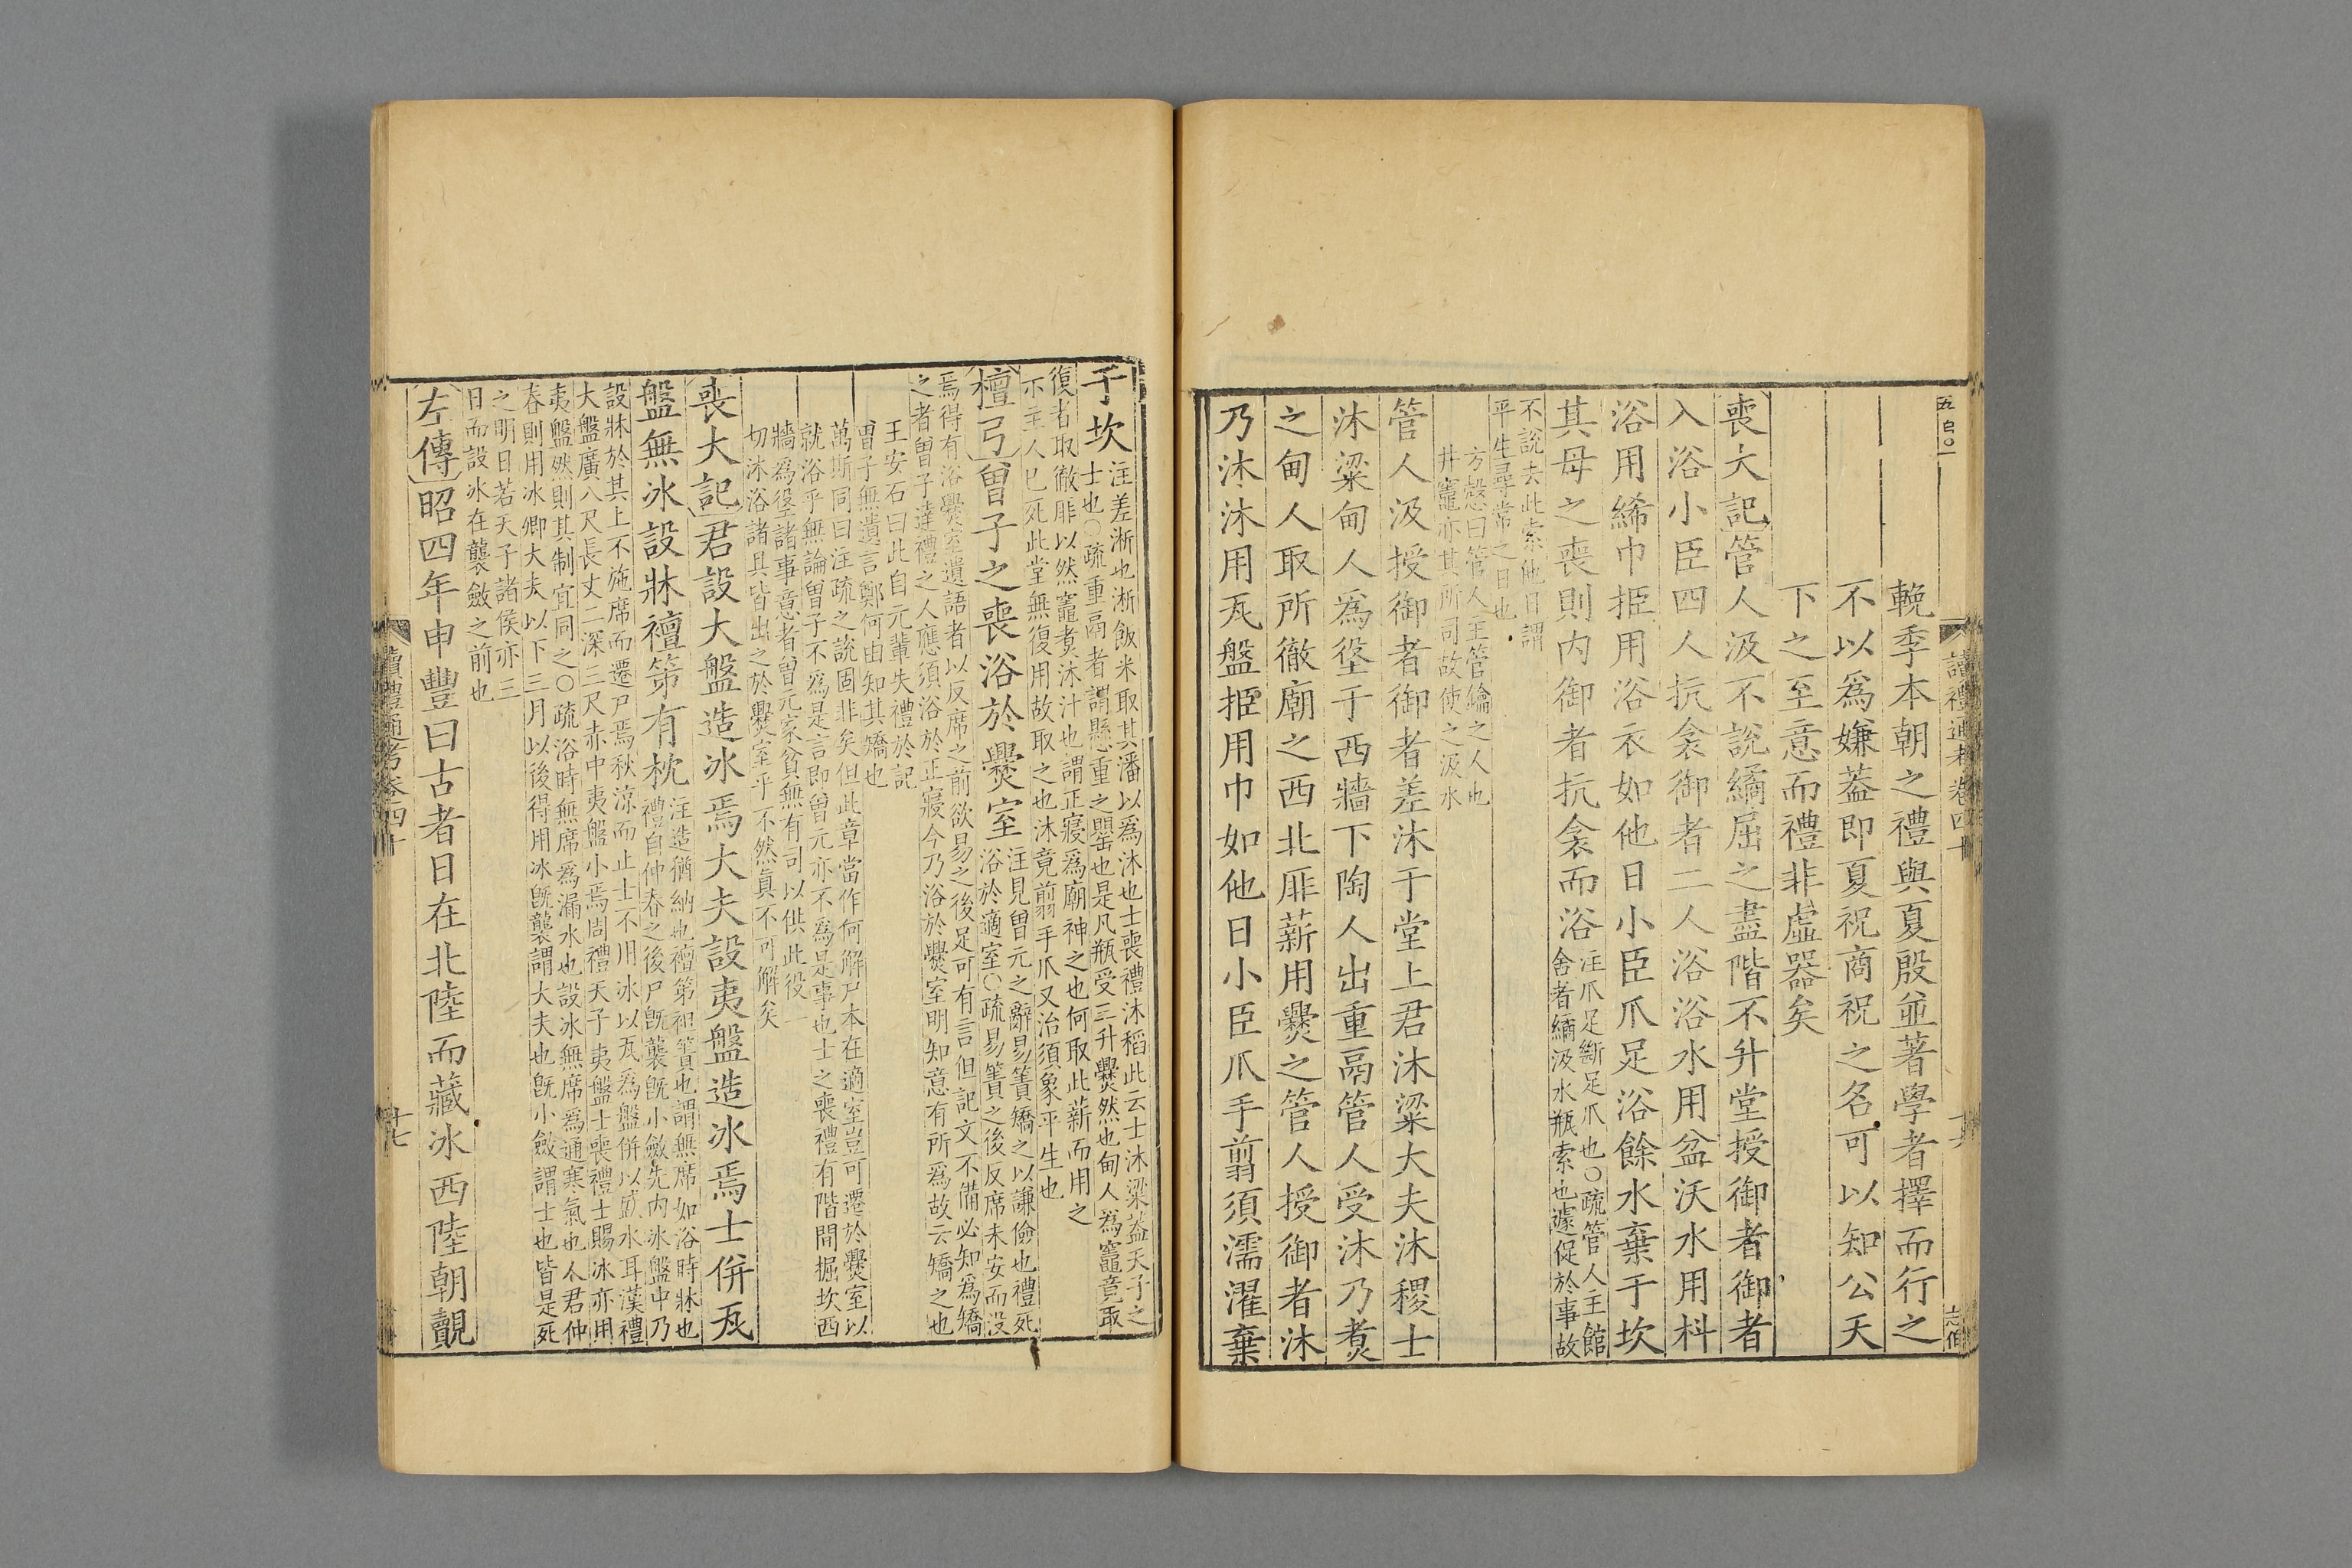 五百〇一
讀禮通考卷四十
十六
輓季本朝之禮與夏殷並著學者擇而行之
不以爲嫌蓋即夏祝商祝之名可以知公天
下之至意而禮非虛器矣
喪大記管人汲不說繘屈之盡階不升堂授御者御者
入浴小臣四人抗衾御者二人浴浴水用盆沃水用枓
浴用絺巾挋用浴衣如他日小臣爪足浴餘水棄于坎
其母之喪則内御者抗衾而浴
注爪足斷足爪也〇疏管人主館
舍者繘汲水瓶索也遽促於事故
不說去此索他日謂
平生尋常之日也
方慤曰管人主管鑰之人也
井竈亦其所司故使之汲水
管人汲授御者御者差沐于堂上君沐粱大夫沐稷士
沐粱甸人爲垼于西牆下陶人出重鬲管人受沐乃煑
之甸人取所徹廟之西北厞薪用爨之管人授御者沐
乃沐沐用瓦盤挋用巾如他日小臣爪手翦須濡濯棄
于坎
注差淅也淅飯米取其潘以爲沐也士喪禮沐稻此云士沐粱蓋天子之
士也〇疏重鬲者謂懸重之罌也是凡瓶受三升爨然也甸人爲竈竟取
復者取徹厞以然竈煑沐汁也謂正寢爲廟神之也何取此薪而用之
不主人已死此堂無復用故取之也沐竟翦手爪又治須象平生也
檀弓曾子之喪浴於爨室
注見曾元之辭易簀矯之以謙儉也禮死
浴於適室〇疏易簀之後反席未安而没
焉得有浴爨室遺語者以反席之前欲易之後足可有言但記文不備必知爲矯
之者曾子達禮之人應須浴於正寢今乃浴於爨室明知意有所爲故云矯之也
王安石曰此自元輩失禮於記
曾子無遺言鄭何由知其矯也
萬斯同曰注疏之說固非矣但此章當作何解尸本在適室豈可遷於爨室以
就浴乎無論曾子不爲是言即曾元亦不爲是事也士之喪禮有階間掘坎西
牆爲垼諸事意者曾元家貧無有司以供此役一
切沐浴諸具皆出之於爨室乎不然眞不可解矣
喪大記君設大盤造冰焉大夫設夷盤造冰焉士併瓦
盤無冰設牀襢第有枕
注造猶納也襢第袒簀也謂無席如浴時牀也
禮自仲春之後尸旣襲旣小斂先内冰盤中乃
設牀於其上不施席而遷尸焉秋涼而止士不用冰以瓦爲盤併以盛水耳漢禮
大盤廣八尺長丈二深三尺赤中夷盤小焉周禮天子夷盤士喪禮士賜冰亦用
夷盤然則其制宜同之〇疏浴時無席爲漏水也設冰無席爲通寒氣也人君仲
春則用冰卿大夫以下三月以後得用冰旣襲謂大夫也旣小斂謂士也皆是死
之明日若天子諸侯亦三
日而設冰在襲斂之前也
左傳昭四年申豐曰古者日在北陸而藏冰西陸朝覿
讀禮通考卷四十
十七